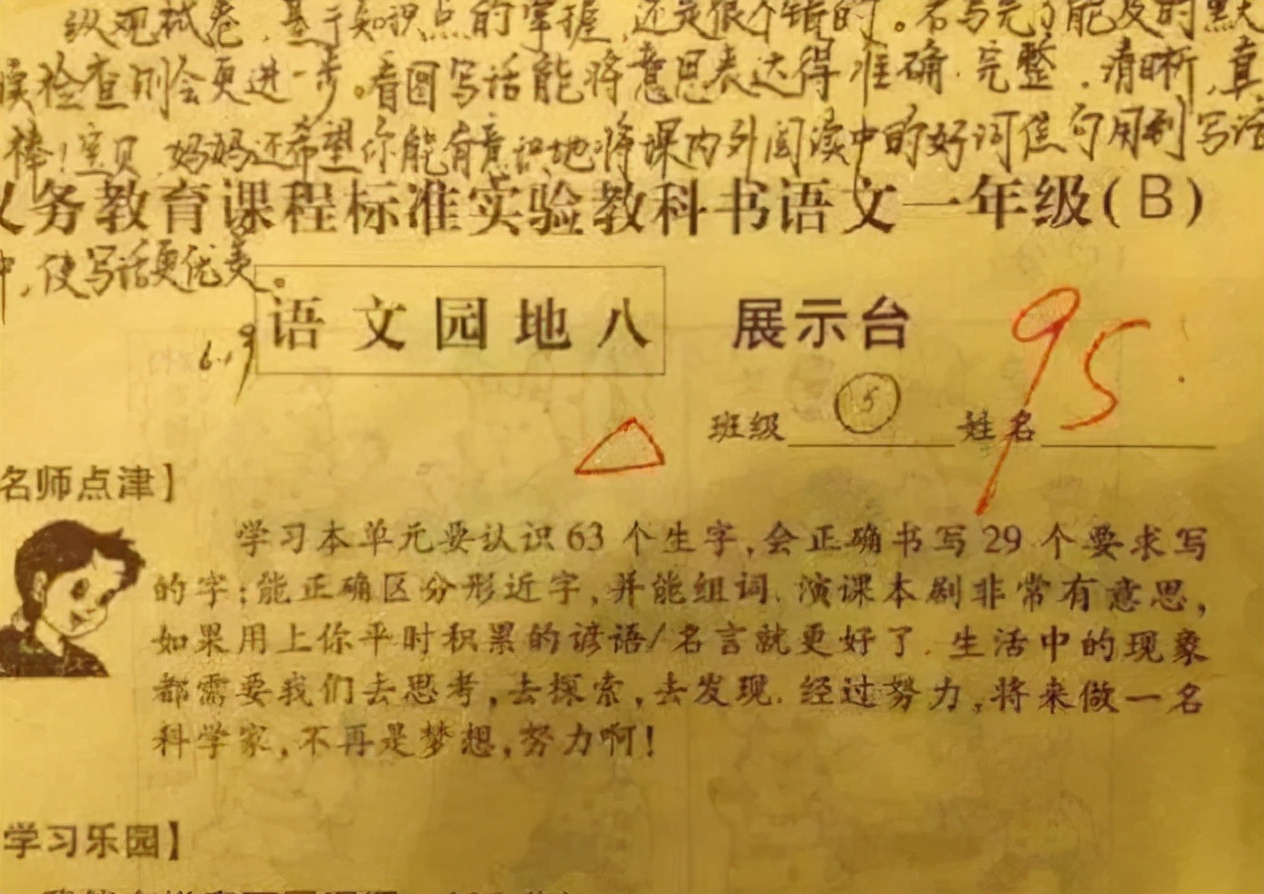 纵观试卷,基于知识点的掌握,还是很不错的。若写完了能及时默
读检查则会更进一步。看图写话能将意思表达得准确.完整.清晰,真
棒!宝贝,妈妈还希望你能有意识地将课内外阅读中的好词佳句用到写话
义务教育课程标准实验教科书语文一年级(B)
中,使写话更优美。
语文园地八 展示台
6.19
95
班级 5 姓名
名师点津】
学习本单元要认识63个生字,会正确书写29个要求写
的字;能正确区分形近字,并能组词.演课本剧非常有意思,
如果用上你平时积累的谚语/名言就更好了.生活中的现象
都需要我们去思考,去探索,去发现.经过努力,将来做一名
科学家,不再是梦想,努力啊!
学习乐园】